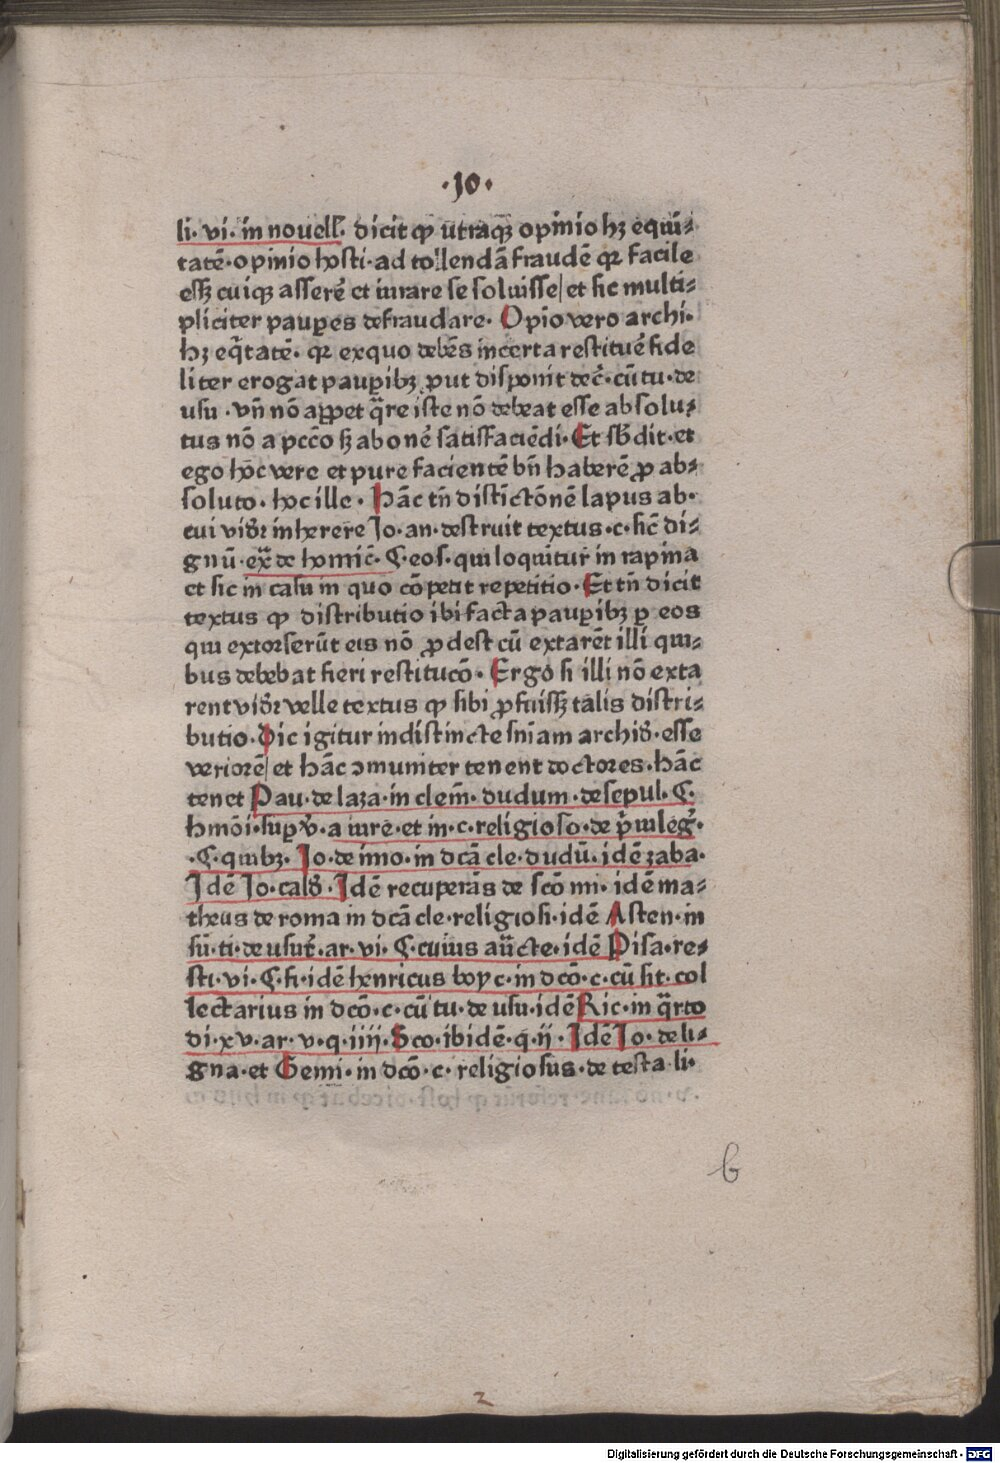 ·10·
li· vi· in nouell̃· dicit ꝙ utraqꝫ opinio hꝫ equi-
tatẽ·opinio hosti·ad tollendã fraudẽ qꝛ facile
essꝫ cuiqꝫ asserẽ et iurare se soluisse|et sic multi-
pliciter pauꝑes defraudare· Opĩo vero archi·
hꝫ eq̃tatẽ· qꝛ exquo debẽs incerta restituẽ fide
liter erogat pauꝑibꝫ ꝓut disponit dec̃·cũ tu·de
usu·vñ nõ apꝑet q̃re iste nõ debeat esse absolu-
tus nõ a pccõ sꝫ ab onẽ satisfaciẽdi·Et sb̃dit·et
ego hoc vere et pure facientẽ bñ haberẽ ꝓ ab-
soluto·hoc ille· Hãc tñ distĩctõnẽ lapus ab·
cui vid̃ꝛ inherere Jo·an·destruit textus·c·sic̃ di-
gnũ·ex̃ de homic̃·¶·eos·qui loquitur in rapina
et sic in casu in quo cõpetit repetitio·Et tñ dicit
textus ꝙ distributio ibi facta pauꝑibꝫ ꝑ eos
qui extorserũt eis nõ ꝓdest cũ extarẽt illi qui-
bus debebat fieri restitucõ·Ergo si illi nõ exta
rent vid̃ꝛ velle textus ꝙ sibi ꝓfuissꝫ talis distri-
butio·Dic igitur indistincte sñiam archid̃·esse
veriorẽ|et hãc ɔmuniter tenent doctores·hãc
tenet Pau·de laza·in clem̃·dudum·de sepul·¶·
hmõi·suꝑ v̄·a iure·et in·c·religioso·de p̃uileg̃·
·¶·quibꝫ·Jo·de imo·in dcã cle·dudũ·idẽ zaba·
Jdẽ Jo·cald̃·Jdẽ recuperãs de scõ mi·idẽ ma-
theus de roma in dcã cle·religiosi·idẽ Asten·in
sũ·ti·de usur̃·ar·vi·¶·cuius aũcte·idẽ Pisa·re-
sti·vi·¶·fi·idẽ henricus boyc·in dcõ·c·cũ sit·col
lectarius in dcõ·c·cũ tu·de usu·idẽ Ric·in q̃rto
di·xv·ar·v·q·iiii·Sco·ibidẽ·q·ii·Jdẽ Jo·de li-
gna·et Gemi·in dcõ·c·religiosus·de testa·li·
b
2
Digitalisierung gefördert durch die Deutsche Forschungsgemeinschaft - DFG